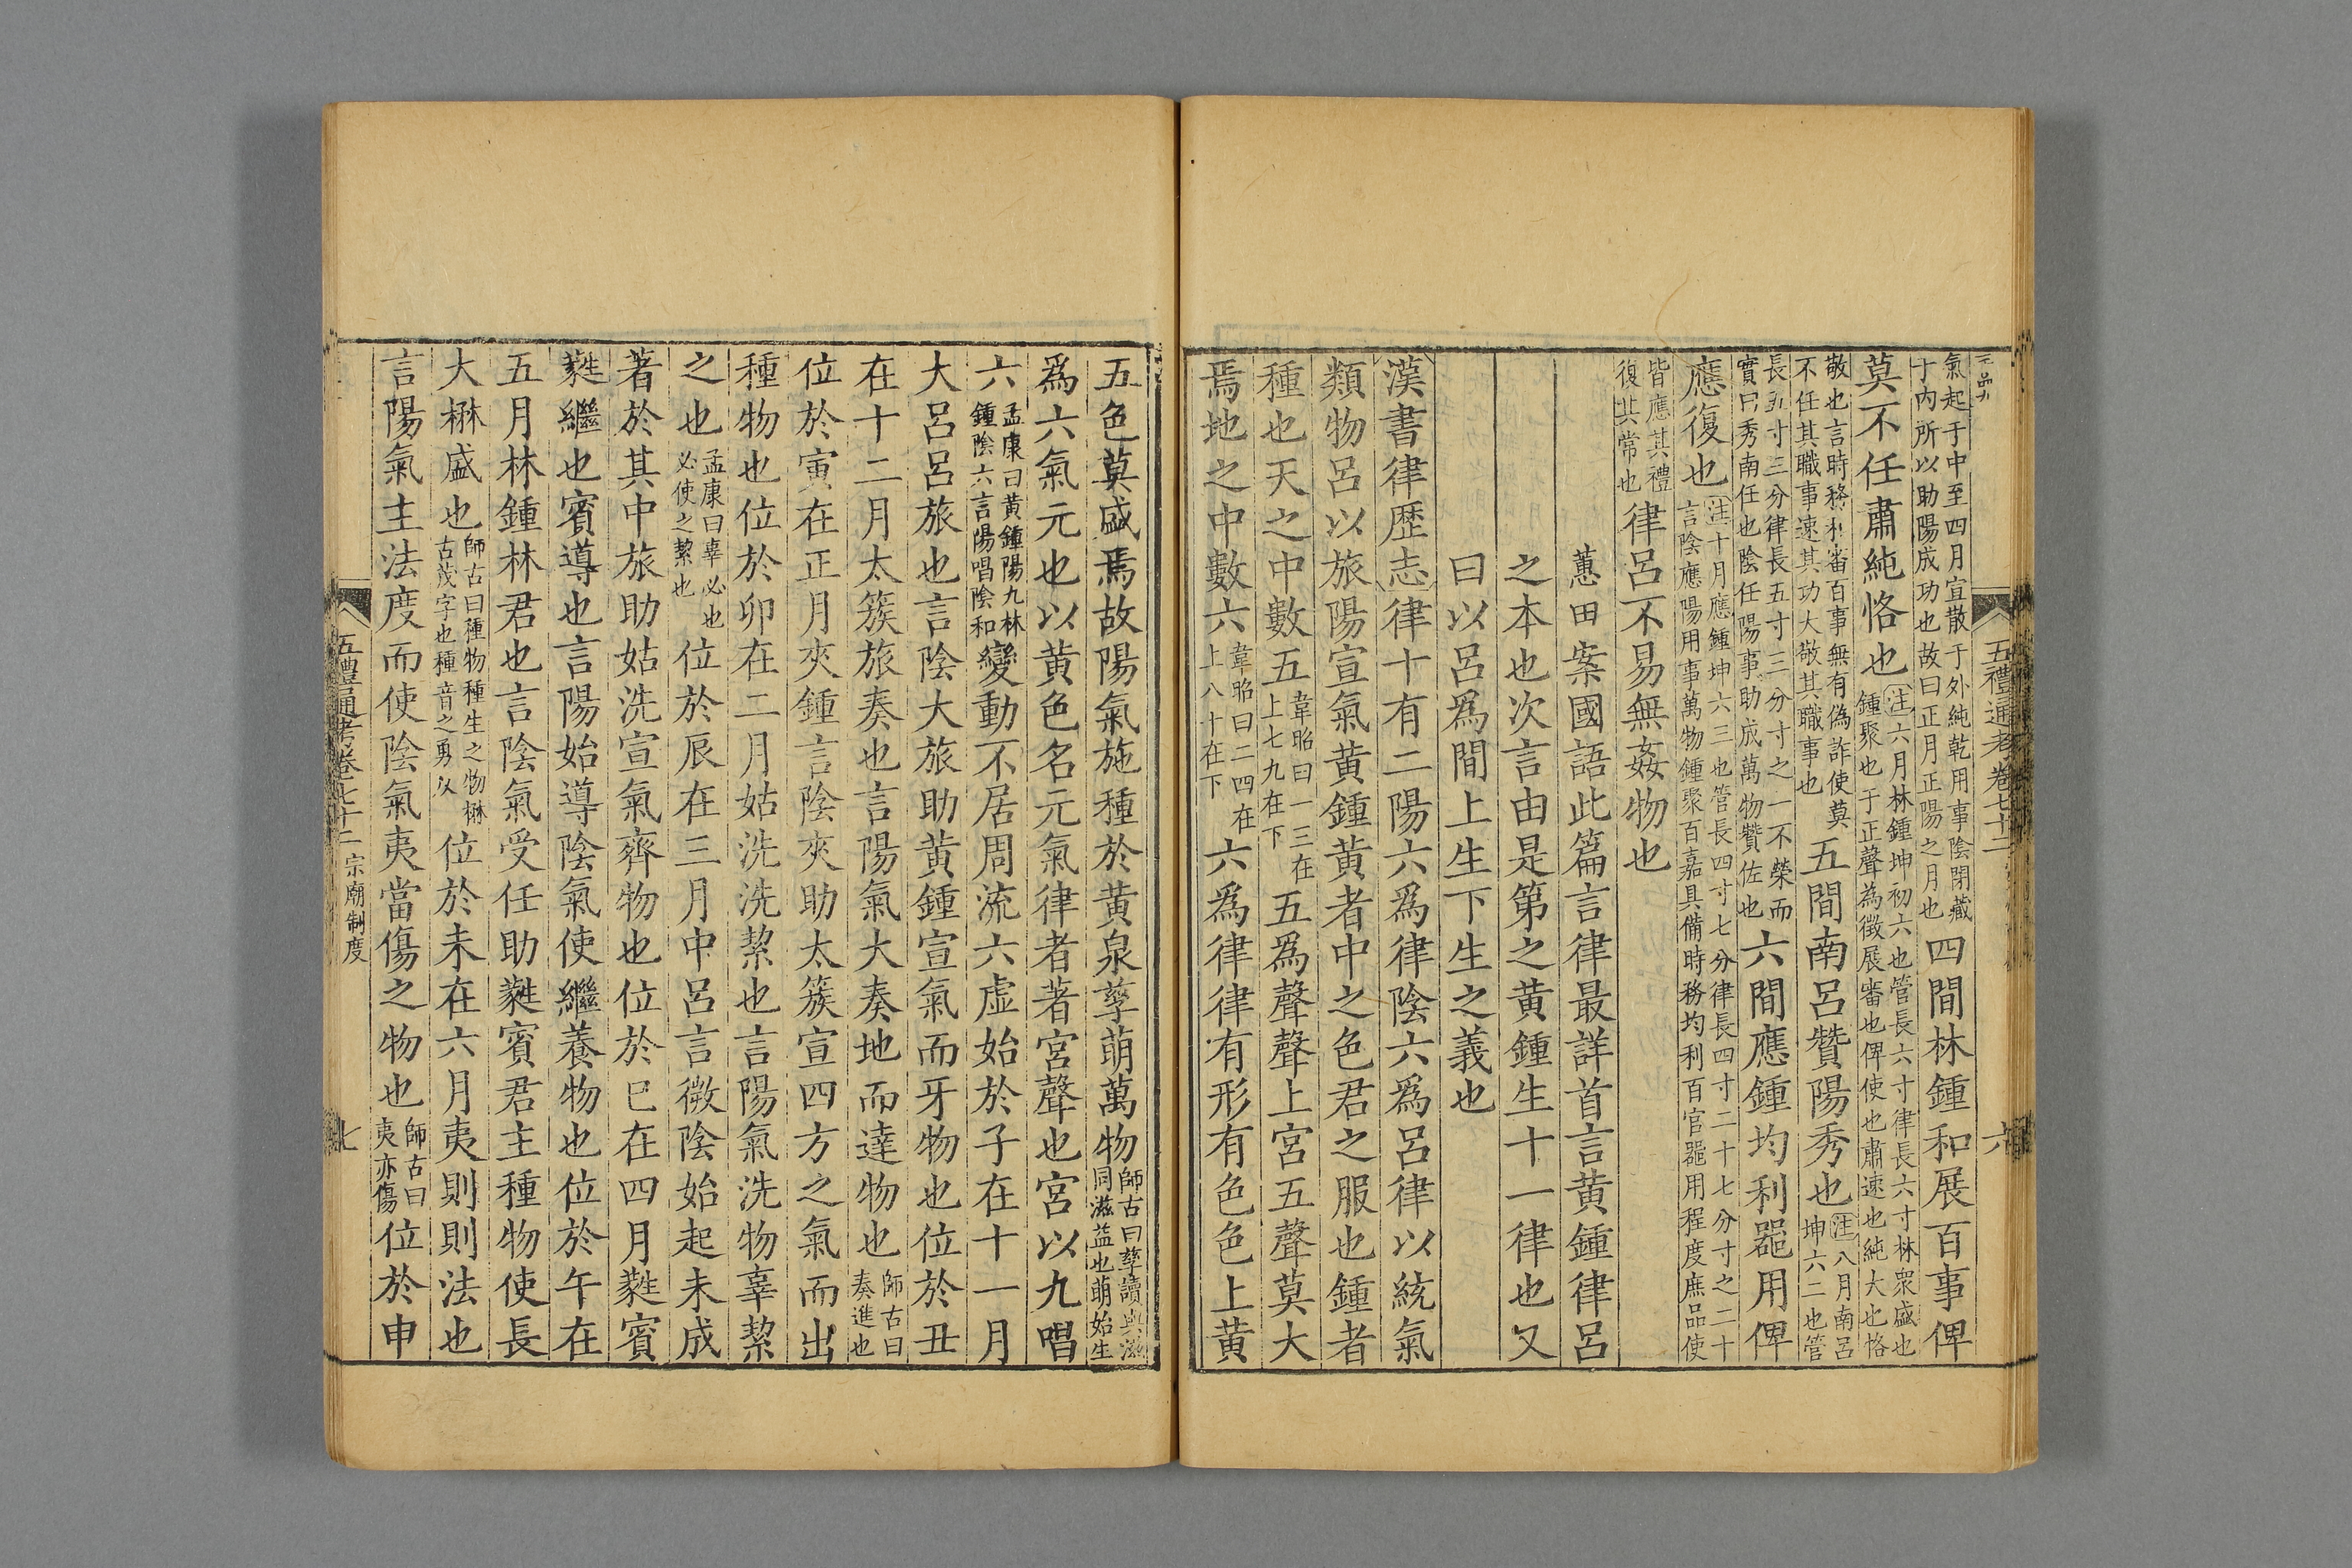 五禮通考卷七十二
六
氣起于中至四月宣散于外純乾用事陰閉藏
于內所以助陽成功也故曰正月正陽之月也四間林鍾和展百事俾
莫不任肅純恪也注六月林鍾坤初六也管長六寸律長六寸林衆盛也
鍾聚也于正聲為徵展審也俾使也肅速也純大也恪
敬也言時務和審百事無有偽詐使莫
不任其職事速其功大敬其職事也五間南呂贊陽秀也注八月南呂
坤六二也管
長五寸三分律長五寸三分寸之一不榮而
實曰秀南任也陰任陽事助成萬物贊佐也六間應鍾均利器用俾
應復也注十月應鍾坤六三也管長四寸七分律長四寸二十七分寸之二十
言陰應陽用事萬物鍾聚百嘉具備時務均利百官器用程度庶品使
皆應其禮
復其常也律呂不易無姦物也
蕙田案國語此篇言律最詳首言黃鍾律呂
之本也次言由是第之黃鍾生十一律也又
曰以呂爲間上生下生之義也
漢書律歷志律十有二陽六爲律陰六爲呂律以統氣
類物呂以旅陽宣氣黃鍾黃者中之色君之服也鍾者
種也天之中數五韋昭曰一三在
上七九在下五爲聲聲上宮五聲莫大
焉地之中數六韋昭曰二四在
上八十在下六爲律律有形有色色上黃
五色莫盛焉故陽氣施種於黃泉孳萌萬物師古曰孳讀與滋
同滋益也萌始生
爲六氣元也以黃色名元氣律者著宮聲也宮以九唱
六孟康曰黃鍾陽九林
鍾陰六言陽唱陰和變動不居周流六虛始於子在十一月
大呂呂旅也言陰大旅助黃鍾宣氣而牙物也位於丑
在十二月太簇旅奏也言陽氣大奏地而達物也師古曰
奏進也
位於寅在正月夾鍾言陰夾助太簇宣四方之氣而出
種物也位於卯在二月姑洗洗絜也言陽氣洗物辜絜
之也孟康曰辜必也
必使之絜也位於辰在三月中呂言微陰始起未成
著於其中旅助姑洗宣氣齊物也位於巳在四月蕤賓
蕤繼也賓導也言陽始導陰氣使繼養物也位於午在
五月林鍾林君也言陰氣受任助蕤賓君主種物使長
大楙盛也師古曰種物種生之物楙
古茂字也種音之勇反位於未在六月夷則則法也
言陽氣主法度而使陰氣夷當傷之物也師古曰
夷亦傷位於申
五禮通考卷七十二 宗廟制度
七